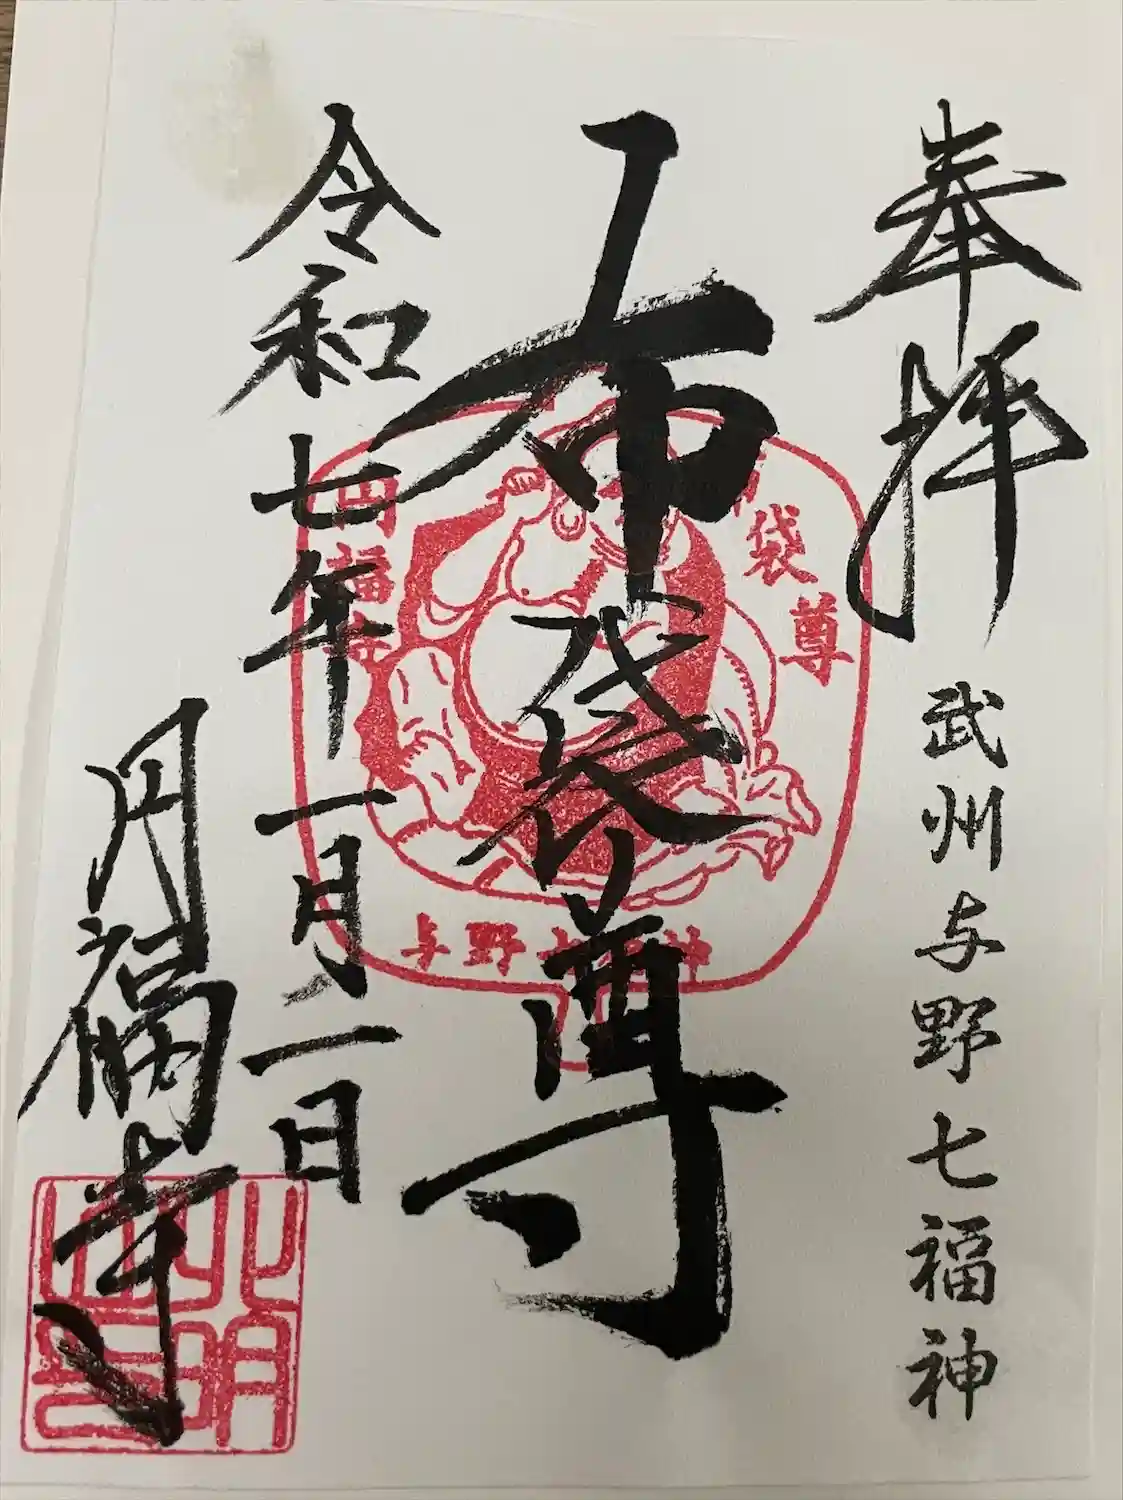 奉拝
武州与野七福神
布袋尊
令和七年一月二日
円福寺
袋尊
円福寺
与野七福神